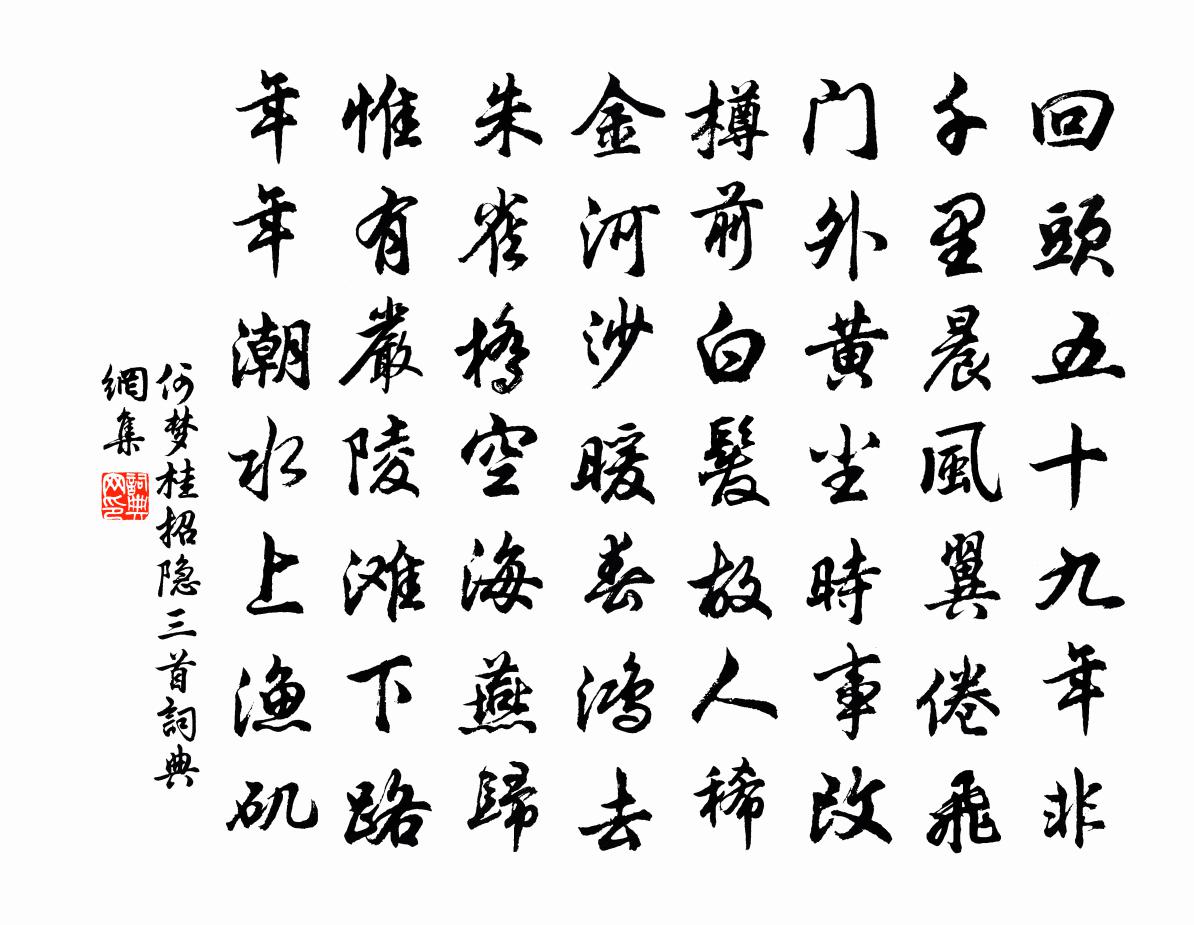 回頭五十九年非
千里晨風翼倦飛
门外黄尘時事改
樽前白髮故人稀
金河沙暖春鸿去
朱雀橋空海燕歸
惟有嚴陵滩下路
年年潮水上渔矶
何梦桂招隐三首詞典
網集
詞典
网印